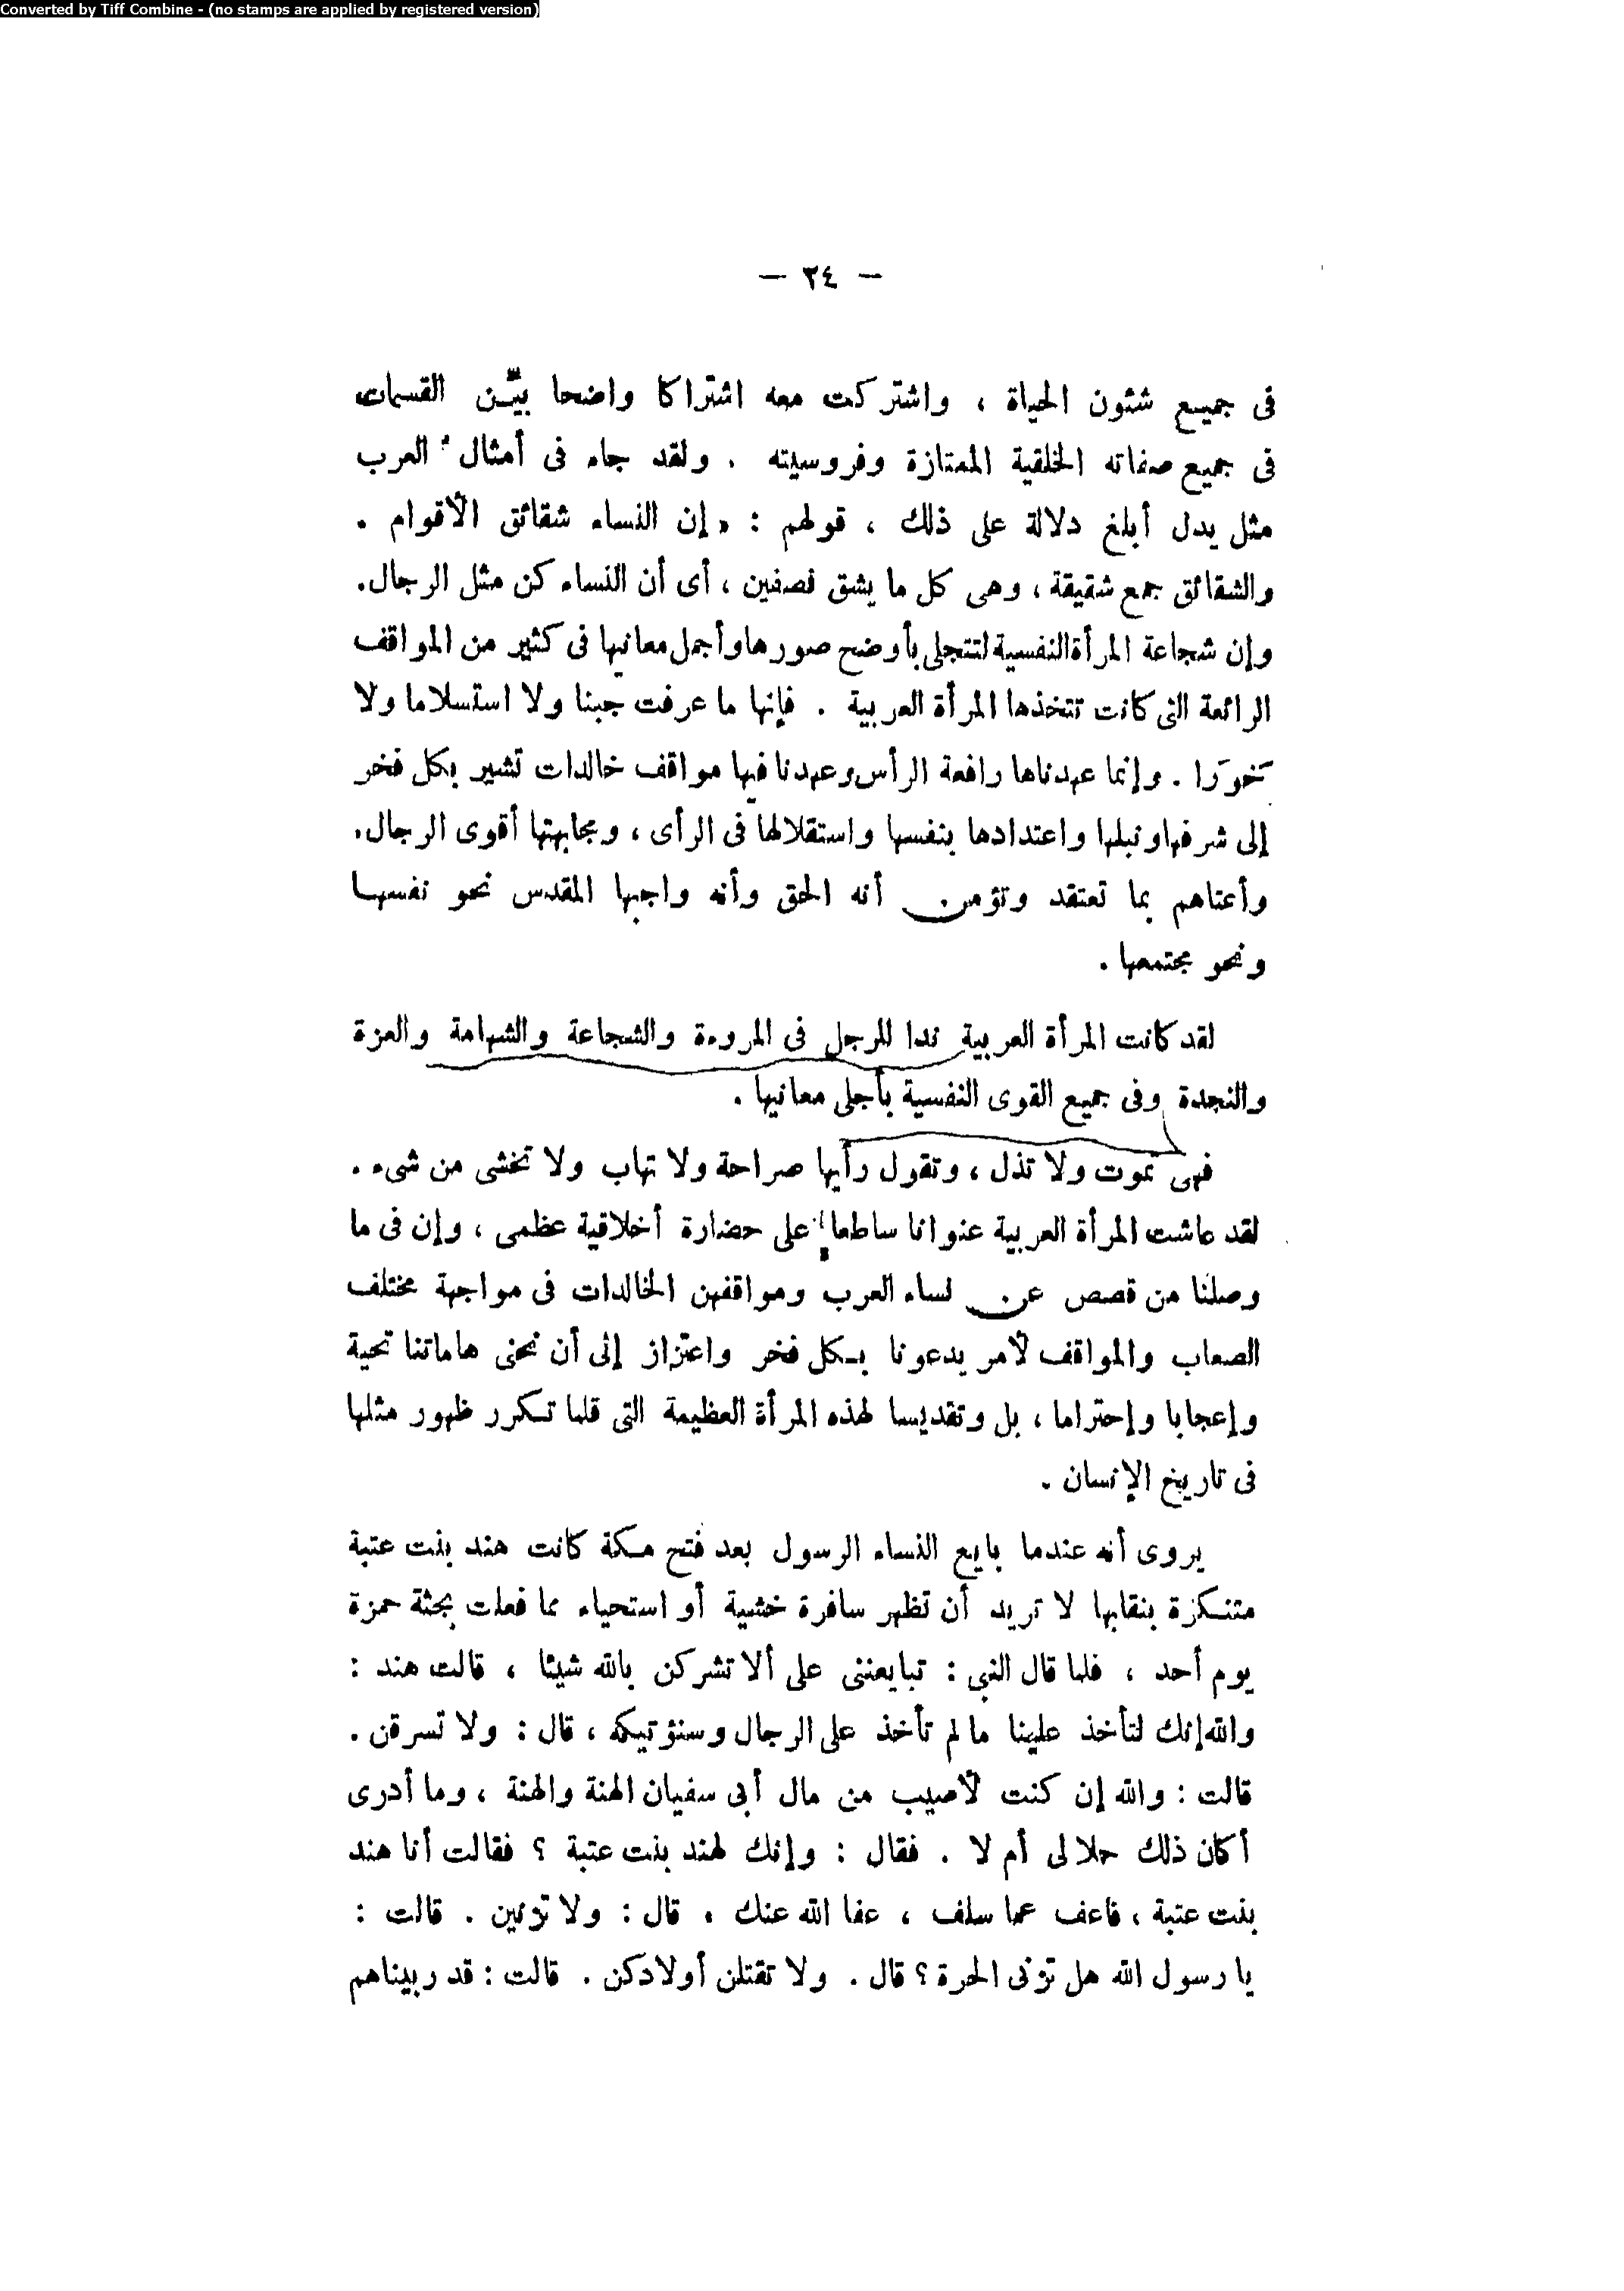 Converted by Tiff Combine - (no stamps are applied by registered version)
— ٣٤ —
فى جميع شئون الحياة ، واشتركت معه اشتراكا واضحا بيّن القسمات
فى جميع صفاته الخلقية الممتازة وفروسيته . ولقد جاء فى أمثال العرب
مثل يدل أبلغ دلالة على ذلك ، قولهم : « إن النساء شقائق الأقوام .
والشقائق جمع شقيقة ، وهى كل ما يشق نصفين ، أى أن النساء كن مثل الرجال.
وإن شجاعة المرأة النفسية لتتجلى بأوضح صورها وأجمل معانيها فى كثير من المواقف
الرائعة التى كانت تتخذها المرأة العربية . فإنها ما عرفت جبنا ولا استسلاما ولا
خَوَرا . وإنما عهدناها رافعة الرأس وعهدنا فيها مواقف خالدات تشير بكل فخر
إلى شرفها ونبلها واعتدادها بنفسها واستقلالها فى الرأى ، ومجابهتها أقوى الرجال.
وأعتاهم بما تعتقد وتؤمن أنه الحق وأنه واجبها المقدس نحو نفسها
ونحو مجتمعها .
لقد كانت المرأة العربية ندا للرجل فى المروءة والشجاعة والشهامة والعزة
والنجدة وفى جميع القوى النفسية بأجلى معانيها .
فهى تموت ولا تذل ، وتقول رأيها صراحة ولا تهاب ولا تخشى من شىء .
لقد عاشت المرأة العربية عنوانا ساطعا على حضارة أخلاقية عظمى ، وإن فى ما
وصلنا من قصص عن نساء العرب ومواقفهن الخالدات فى مواجهة مختلف
الصعاب والمواقف لأمر يدعونا بكل فخر واعتزاز إلى أن نحنى هاماتنا تحية
وإعجابا وإحتراما ، بل وتقديسا لهذه المرأة العظيمة التى قلما تكرر ظهور مثلها
فى تاريخ الإنسان .
يروى أنه عندما بايع النساء الرسول بعد فتح مكة كانت هند بنت عتبة
متنكرة بنقابها لا تريد أن تظهر سافرة خشية أو استحياء مما فعلت بجثة حمزة
يوم أحد ، فلما قال النبي : تبايعننى على ألا تشركن بالله شيئا ، قالت هند :
والله إنك لتأخذ علينا ما لم تأخذ على الرجال وسنؤتيكه ، قال : ولا تسرقن .
قالت : والله إن كنت لأصيب من مال أبى سفيان الهنة والهنة ، وما أدرى
أكان ذلك حلا لى أم لا . فقال : وإنك لهند بنت عتبة ؟ فقالت أنا هند
بنت عتبة ، فاعف عما سلف ، عفا الله عنك . قال : ولا تزنين . قالت :
يا رسول الله هل تزنى الحرة ؟ قال . ولا تقتلن أولادكن . قالت : قد ربيناهم